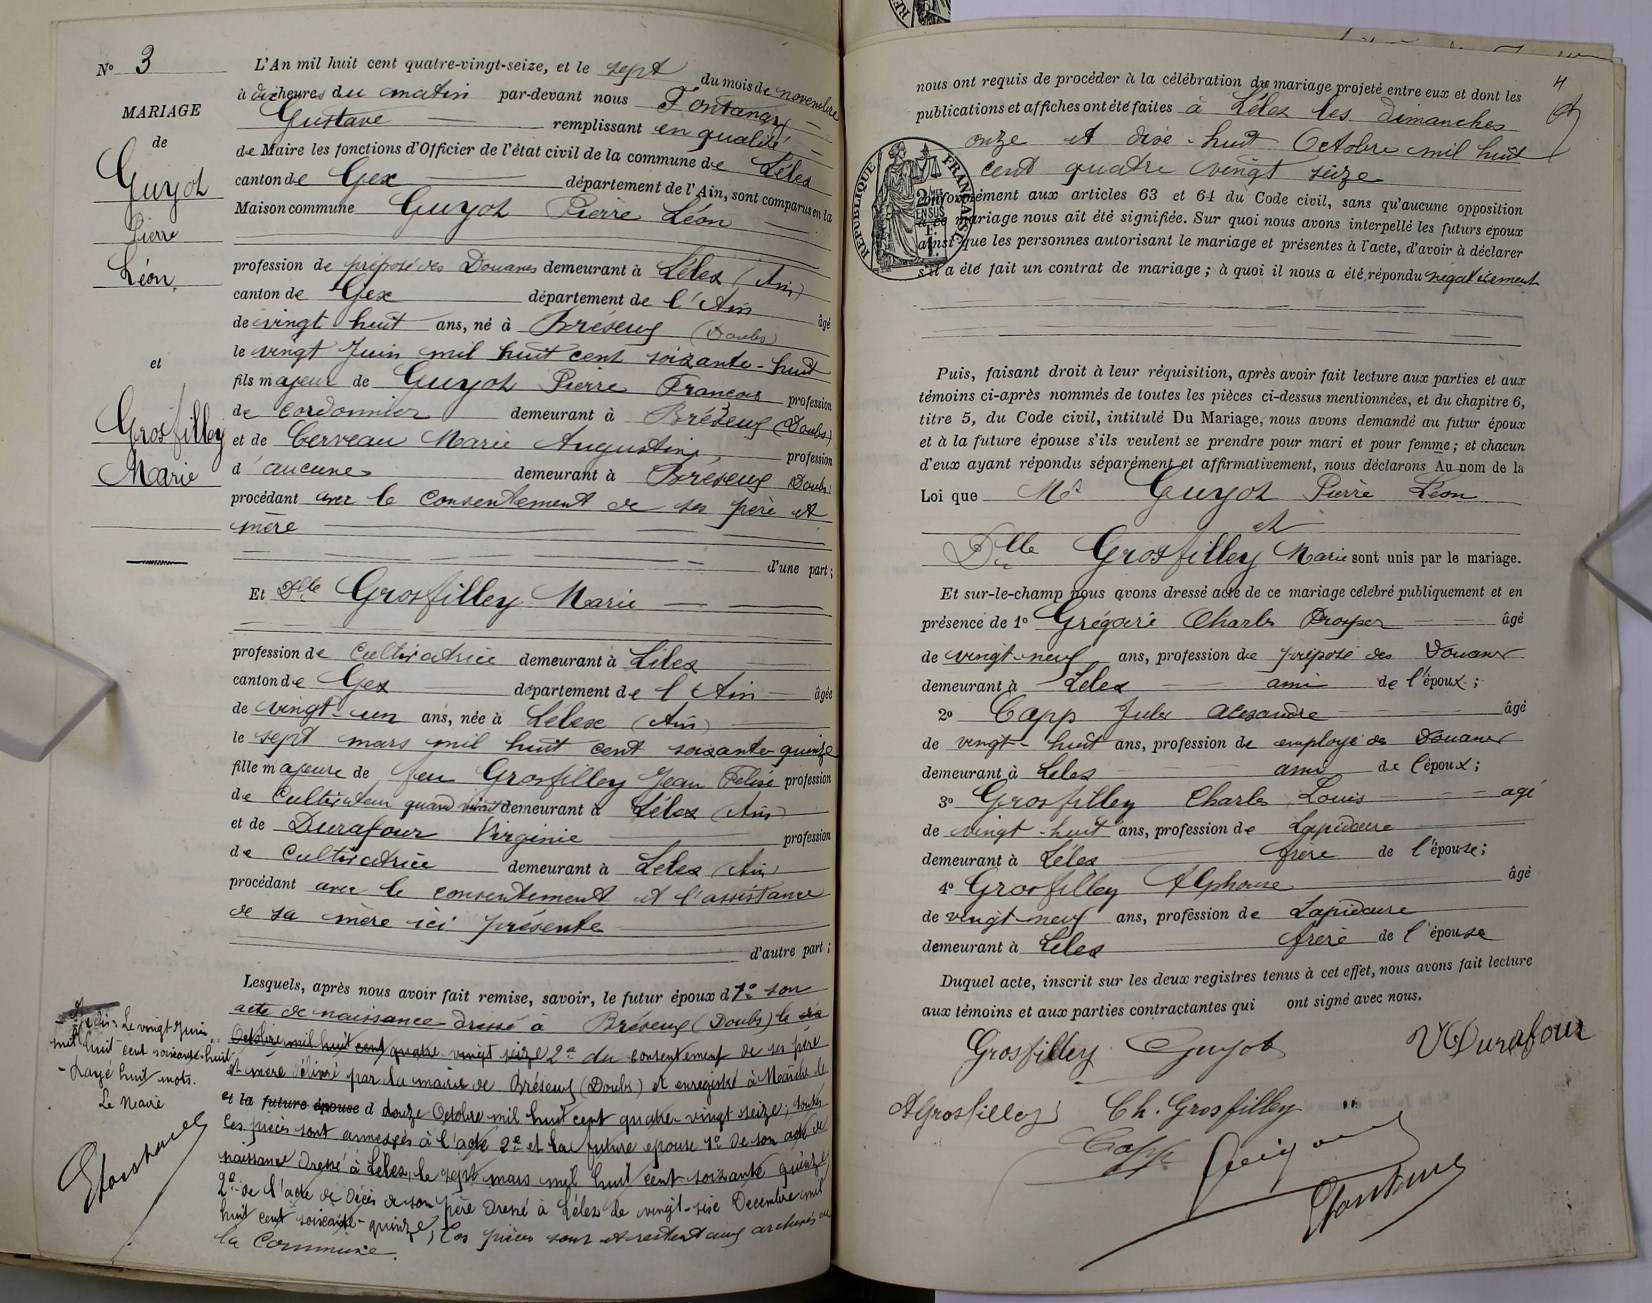 N° 3
MARIAGE
de
Guyot
Pierre
Léon,
et
Grosfilley
Marie
L'An mil huit cent quatre-vingt-seize, et le sept du mois de novembre
à dix heures du matin par-devant nous Fontanay
Gustave remplissant en qualité
de Maire les fonctions d'Officier de l'état civil de la commune de Lélex
canton de Gex département de l'Ain, sont comparus en la
Maison commune Guyot Pierre Léon
profession de préposé des Douanes demeurant à Lélex (Ain)
canton de Gex département de l'Ain âgé
de vingt huit ans, né à Bréseux (Doubs)
le vingt Juin mil huit cent soixante-huit
fils majeur de Guyot Pierre François profession
de cordonnier demeurant à Bréseux (Doubs)
et de Cerveau Marie Augustine profession
d'aucune demeurant à Bréseux Doubs
procédant avec le consentement de ses père et
mère
d'une part ;
Et Dlle Grosfilley Marie
profession de cultivatrice demeurant à Lélex
canton de Gex département de l'Ain âgée
de vingt-un ans, née à Lelex (Ain)
le sept mars mil huit cent soixante quinze
fille majeure de feu Grosfilley Jean Félix profession
de Cultivateur quand vivait demeurant à Lélex (Ain)
et de Durafour Virginie profession
de Cultivatrice demeurant à Lelex (Ain)
procédant avec le consentement et l'assistance
de sa mère ici présente
d'autre part ;
Lesquels, après nous avoir fait remise, savoir, le futur époux d 1° son
acte de naissance dressé à Bréseux (Doubs) le dix
Octobre mil huit cent quatre vingt seize 2° du consentement de ses père
et mère délivré par la mairie de Bréseux (Doubs) et enregistré à Maîche le
et la future épouse d douze Octobre mil huit cent quatre vingt seize ; toutes
ces pièces sont annexées à l'acte 2° et la future épouse 1° de son acte de
naissance dressé à Lelex, le sept mars mil huit cent soixante quinze
2° de l'acte de décès de son père dressé à Lélex le vingt-six Decembre mil
huit cent soixante-quinze ; Ces pièces sont et restent aux archives de
la Commune.
Le vingt Juin
mil huit cent soixante-huit
- Rayé huit mots.
Le Maire
4
nous ont requis de procéder à la célébration du mariage projeté entre eux et dont les
publications et affiches ont été faites à Lélex les dimanches
onze et dix-huit Octobre mil huit
cent quatre vingt seize
RÉPUBLIQUE FRANÇAISE
conformément aux articles 63 et 64 du Code civil, sans qu'aucune opposition
à ce mariage nous ait été signifiée. Sur quoi nous avons interpellé les futurs époux
ainsi que les personnes autorisant le mariage et présentes à l'acte, d'avoir à déclarer
s'il a été fait un contrat de mariage ; à quoi il nous a été répondu négativement
Puis, faisant droit à leur réquisition, après avoir fait lecture aux parties et aux
témoins ci-après nommés de toutes les pièces ci-dessus mentionnées, et du chapitre 6,
titre 5, du Code civil, intitulé Du Mariage, nous avons demandé au futur époux
et à la future épouse s'ils veulent se prendre pour mari et pour femme ; et chacun
d'eux ayant répondu séparément et affirmativement, nous déclarons Au nom de la
Loi que Mr Guyot Pierre Léon
et
Dlle Grosfilley Marie sont unis par le mariage.
Et sur-le-champ nous avons dressé acte de ce mariage célébré publiquement et en
présence de 1° Grégoire Charles Prosper âgé
de vingt-neuf ans, profession de préposé des Douanes
demeurant à Lelex ami de l'époux ;
2° Capp Jules Alexandre âgé
de vingt-huit ans, profession de employé des Douanes
demeurant à Lelex ami de l'époux ;
3° Grosfilley Charles Louis agé
de vingt-huit ans, profession de Lapidaire
demeurant à Lélex frère de l'épouse ;
4° Grosfilley Alphonse âgé
de vingt-neuf ans, profession de Lapidaire
demeurant à Lelex frère de l'épouse
Duquel acte, inscrit sur les deux registres tenus à cet effet, nous avons fait lecture
aux témoins et aux parties contractantes qui ont signé avec nous.
Grosfilley Guyot V Durafour
A Grosfilley Ch. Grosfilley
Capp